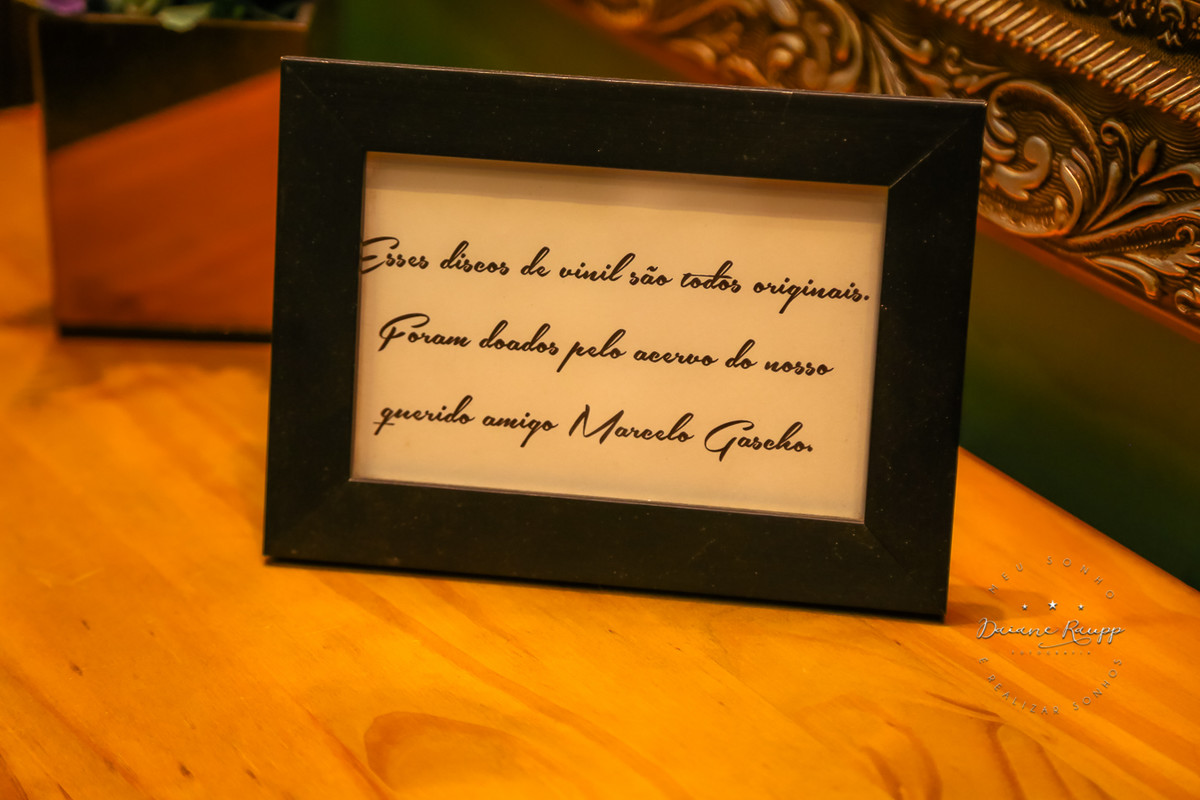 Esses discos de vinil são todos originais.
Foram doados pelo acervo do nosso
querido amigo Marcelo Gascho.
MEU SONHO
Daiane Raupp
FOTOGRAFIA
É REALIZAR SONHOS